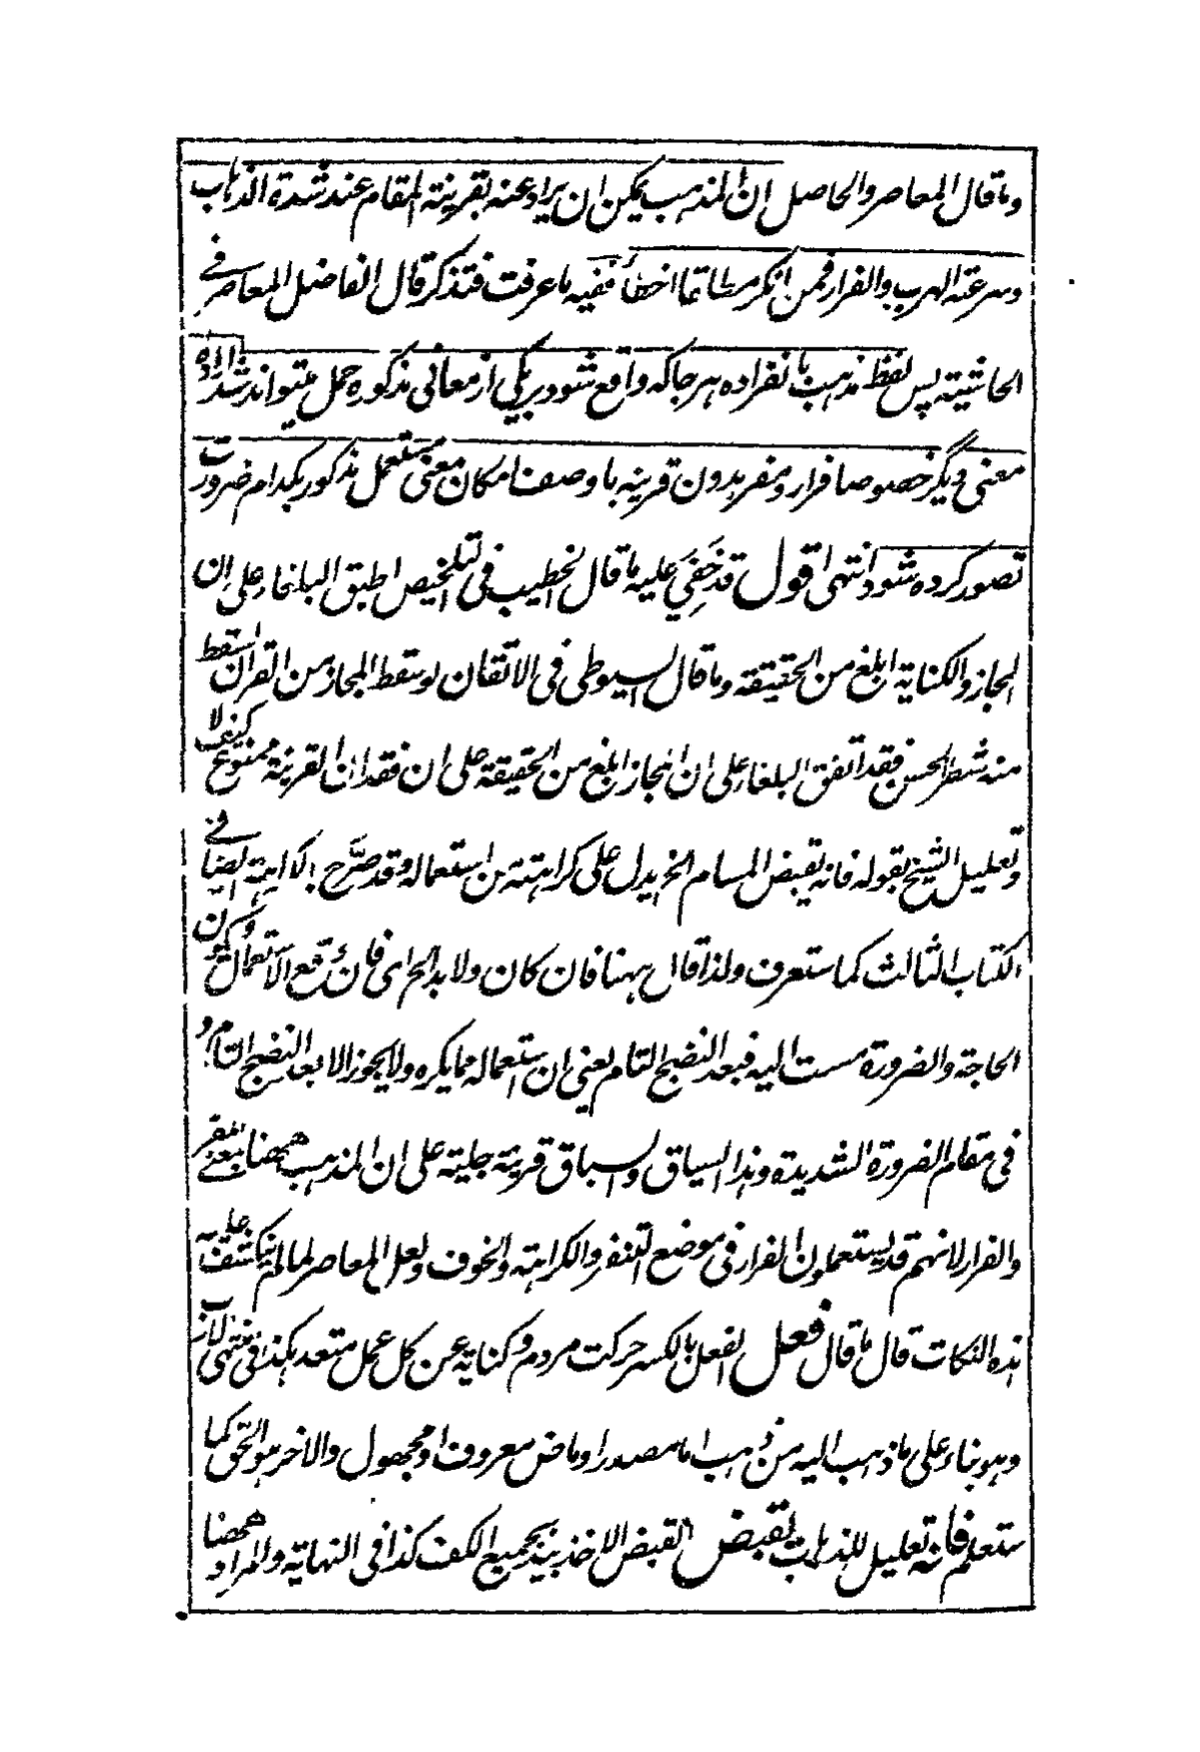 وما قال المعاصر والحاصل ان المذهب يمكن ان يراد عنه بقرينة المقام عند شدة الذهاب
وسرعته الهرب والفرار فمن انكر مطلقا اخطأ ففيه ما عرفت فتذكر قال الفاضل المعاصر في
الحاشية پس لفظ مذهب بانفراده هر جا كه واقع شود بر یکی از معانی مذکوره حمل میتواند شد اراده
معنی دیگر خصوصا فرار ومفر بدون قرینه با وصف امکان معنی مستعمل مذکور بکدام ضرورت
تصور کرده شود انتهى اقول قد خَفِيَ عليه ما قال الخطيب في التلخيص اطبق البلغاء على ان
المجاز والكناية ابلغ من الحقيقة وما قال السيوطي في الاتقان لو سقط المجاز من القران سقط
منه شطر الحسن فقد اتفق البلغاء على ان المجاز ابلغ من الحقيقة على ان فقدان القرينة ممنوع كيف لا
وتعليل الشيخ بقوله فانه يقبض المسام الخ يدل على كراهته من استعماله وقد صرَّح بالكراهية ايضا في
الكتاب الثالث كما ستعرف ولذا قال ههنا فان كان ولا بد الخ اى فان وقع الاستعمال وكون
الحاجة والضرورة مست اليه فبعد النضج التام يعني ان استعماله مما يكره ولا يجوز الا بعد النضج التام و
في مقام الضرورة الشديدة وهذا السياق والسباق قرينة جلية على ان المذهب ههنا بمعنى المفر
والفرار لانهم قد يستعملون الفرار في موضع التنفر والكراهة والخوف ولعل المعاصر لما لم ينكشف عليه
هذه النكات قال ما قال فعل الفعل بالكسر حركت مردم وكناية عن كل عمل متعد هكذا في منتهى الارب
وهو بناء على ما ذهب اليه من ذهب اما مصدر او ماض معروف او مجهول والاخر هو الحق كما
ستعلم فانه تعليل للذهاب يقبض القبض الاخذ بيد بجميع الكف كذا في النهاية والمراد ههنا